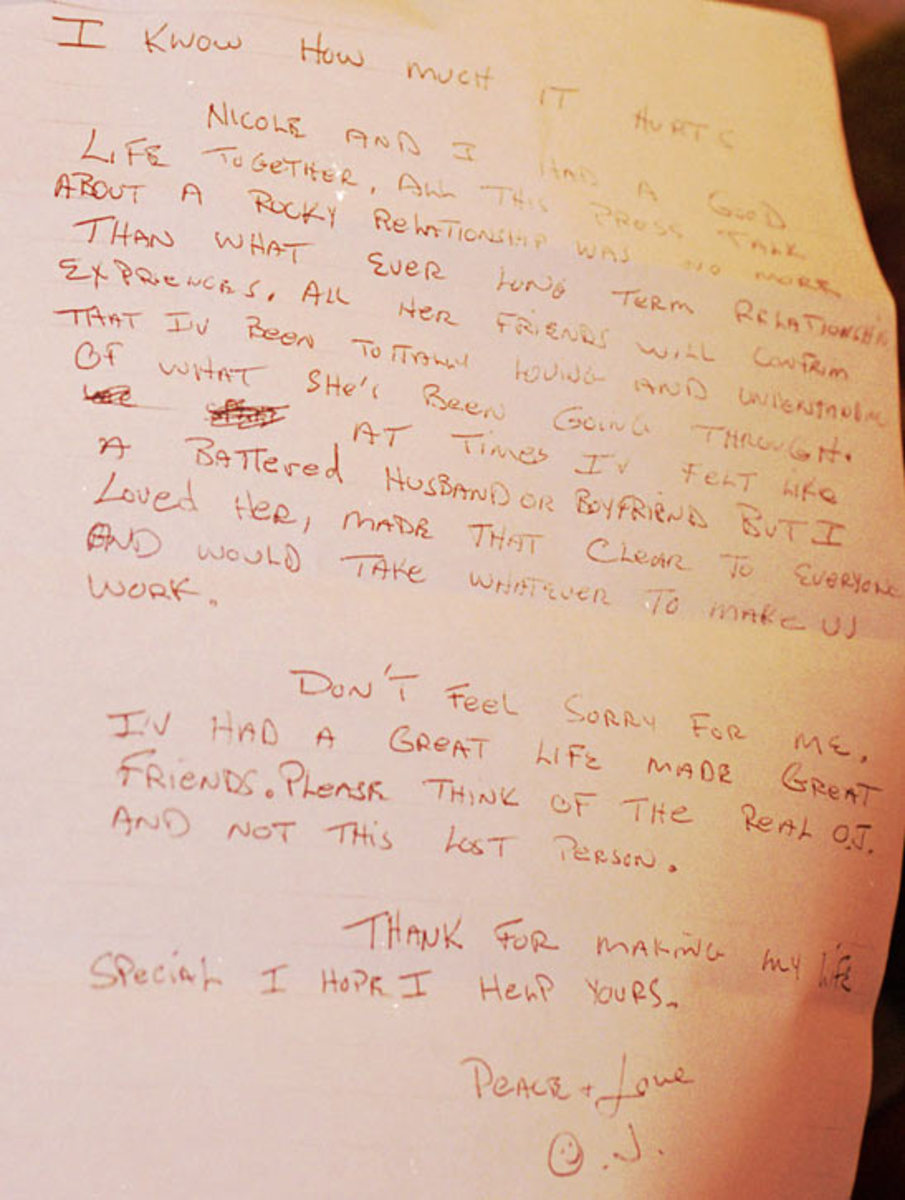 I KNOW HOW MUCH IT HURTS
NICOLE AND I HAD A GOOD
LIFE TOGETHER, ALL THIS PRESS TALK
ABOUT A ROCKY RELATIONSHIP WAS NO MORE
THAN WHAT EVER LONG TERM RELATIONSHIP
EXPRIENCES. ALL HER FRIENDS WILL CONFRIM
THAT I'V BEEN TOTTALLY LOVING AND UNDERSTANDING
OF WHAT SHE'S BEEN GOING THROUGH.
AT TIMES I'V FELT LIKE
A BATTERED HUSBAND OR BOYFRIEND BUT I
LOVED HER, MADE THAT CLEAR TO EVERYONE
AND WOULD TAKE WHATEVER TO MAKE US
WORK.
DON'T FEEL SORRY FOR ME.
I'V HAD A GREAT LIFE MADE GREAT
FRIENDS. PLEASE THINK OF THE REAL O.J.
AND NOT THIS LOST PERSON.
THANK FOR MAKING MY LIFE
SPECIAL I HOPE I HELP YOURS.
PEACE + LOVE
O.J.